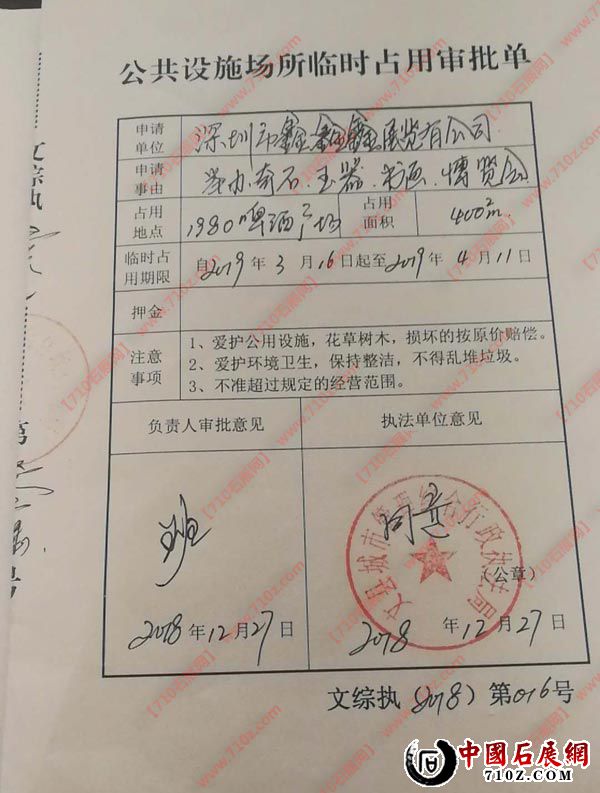 公共设施场所临时占用审批单
申请单位
深圳市鑫鑫鑫展览有限公司
申请事由
举办奇石.玉器.书画.博览会
占用地点
1980啤酒广场
占用面积
400㎡
临时占用期限
自2019年3月16日起至2019年4月11日
押金
注意事项
1、爱护公用设施，花草树木，损坏的按原价赔偿。
2、爱护环境卫生，保持整洁，不得乱堆垃圾。
3、不准超过规定的经营范围。
负责人审批意见
执法单位意见
班
同意
文县城市管理综合行政执法局
（公章）
2018年12月27日
2018年12月27日
文综执（2018）第016号
文综执
第
号
【710石展网】www.710z.com
中國石展網
710Z.COM